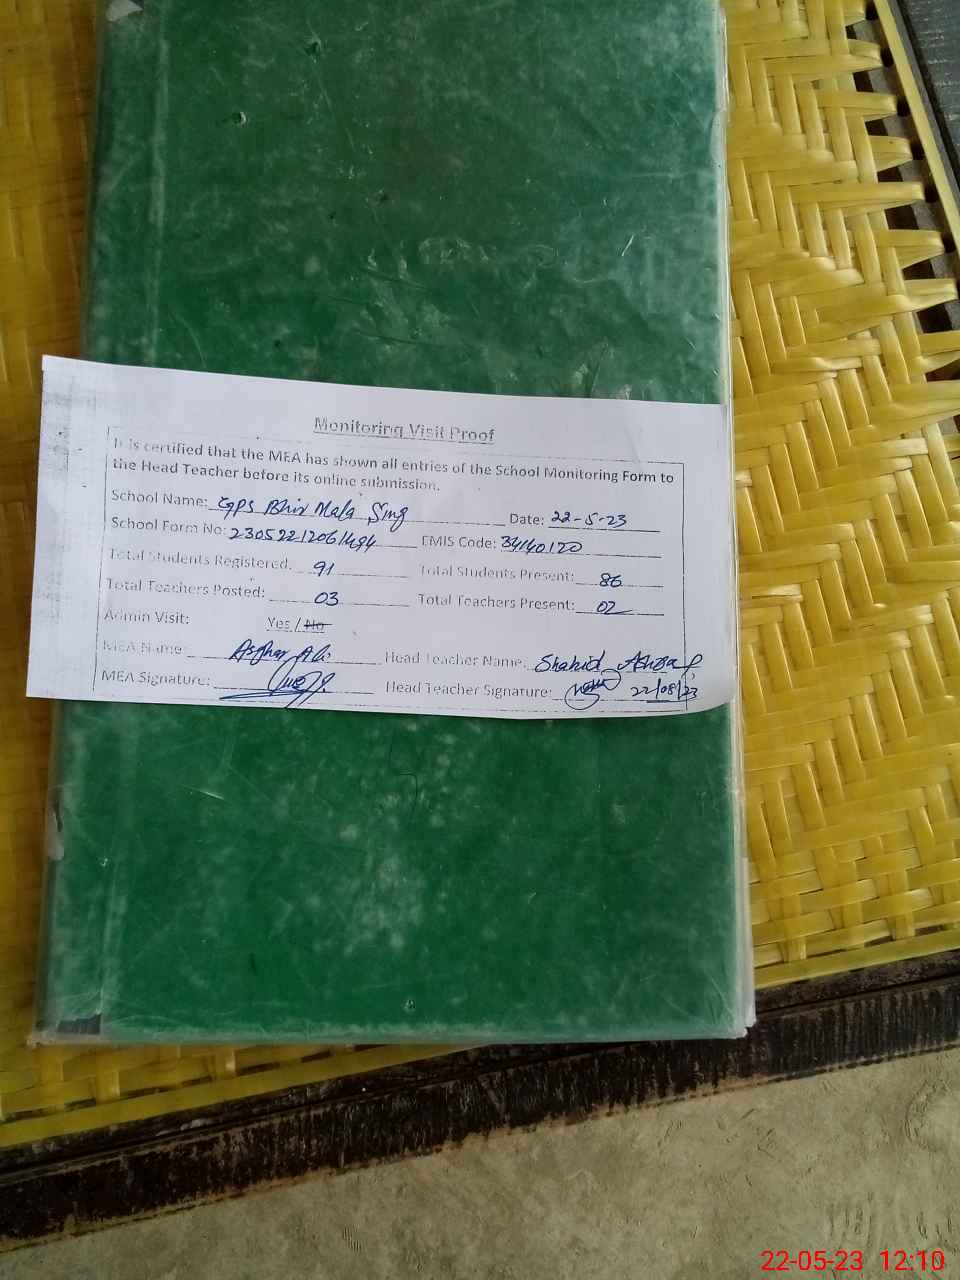 Monitoring Visit Proof
It is certified that the MEA has shown all entries of the School Monitoring Form to
the Head Teacher before its online submission.
School Name: GPS Bhir Mala Sing Date: 22-5-23
School Form No: 23052212061494 EMIS Code: 34140120
Total Students Registered: 91 Total Students Present: 86
Total Teachers Posted: 03 Total Teachers Present: 02
Admin Visit: Yes / No
MEA Name: Asghar Ali Head Teacher Name: Shahid Ashraf
MEA Signature: Head Teacher Signature: 22/08/23
22-05-23 12:10